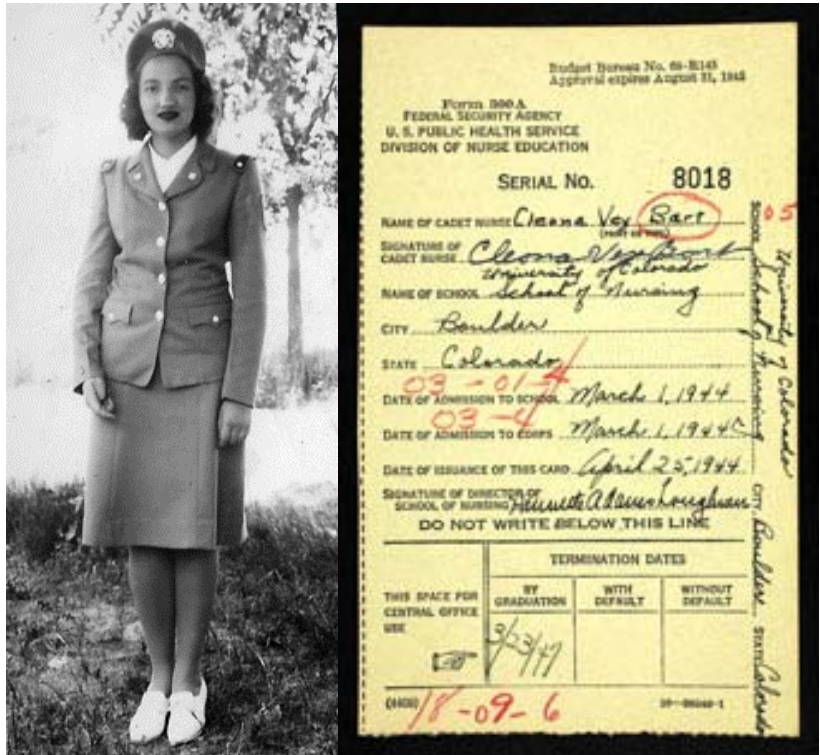 Budget Bureau No. 68-R143
Approval expires August 31, 1945
Form 300A
FEDERAL SECURITY AGENCY
U. S. PUBLIC HEALTH SERVICE
DIVISION OF NURSE EDUCATION
SERIAL NO. 8018
NAME OF CADET NURSE Cleona Vey Bart
(PRINT OR TYPE)
SIGNATURE OF
CADET NURSE Cleona Vey Bart
University of Colorado
NAME OF SCHOOL School of Nursing
CITY Boulder
STATE Colorado
03-01-4
DATE OF ADMISSION TO SCHOOL March 1, 1944
03-4
DATE OF ADMISSION TO CORPS March 1, 1944
DATE OF ISSUANCE OF THIS CARD April 25, 1944
SIGNATURE OF DIRECTOR OF
SCHOOL OF NURSING Loughran
DO NOT WRITE BELOW THIS LINE
THIS SPACE FOR
CENTRAL OFFICE
USE
TERMINATION DATES
BY
GRADUATION
WITH
DEFAULT
WITHOUT
DEFAULT
3/23/47
18-09-6
05
SCHOOL University of Colorado
School of Nursing
CITY Boulder STATE Colorado